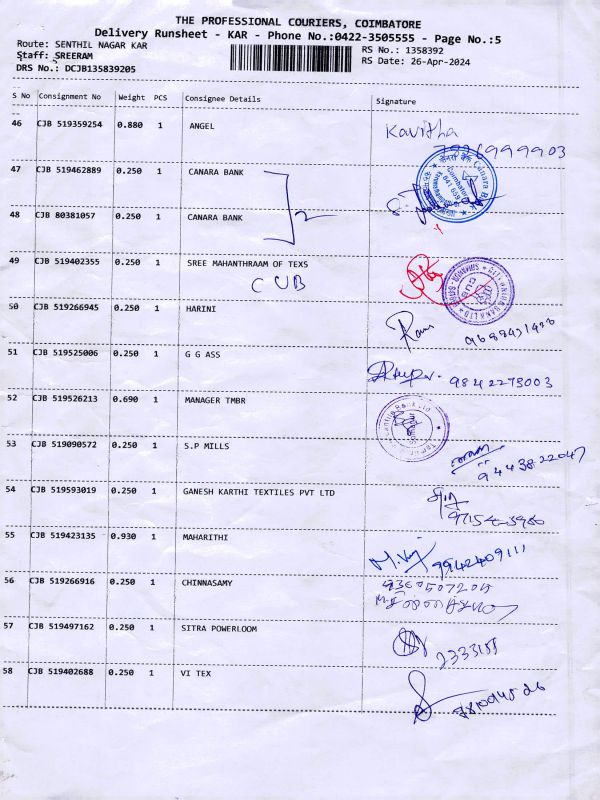 THE PROFESSIONAL COURIERS, COIMBATORE
Delivery Runsheet - KAR - Phone No.:0422-3505555 - Page No.:5
Route: SENTHIL NAGAR KAR
RS No.: 1358392
Staff: SREERAM
RS Date: 26-Apr-2024
DRS No.: DCJB135839205
S No Consignment No Weight PCS Consignee Details Signature
46 CJB 519359254 0.880 1 ANGEL Kavitha
47 CJB 519462889 0.250 1 CANARA BANK
2
48 CJB 80381057 0.250 1 CANARA BANK
49 CJB 519402355 0.250 1 SREE MAHANTHRAAM OF TEXS
CUB
50 CJB 519266945 0.250 1 HARINI
51 CJB 519525006 0.250 1 G G ASS
9842273003
52 CJB 519526213 0.690 1 MANAGER TMBR
53 CJB 519090572 0.250 1 S.P MILLS
9443822047
54 CJB 519593019 0.250 1 GANESH KARTHI TEXTILES PVT LTD
55 CJB 519423135 0.930 1 MAHARITHI
9942409111
56 CJB 519266916 0.250 1 CHINNASAMY
57 CJB 519497162 0.250 1 SITRA POWERLOOM
2333155
58 CJB 519402688 0.250 1 VI TEX